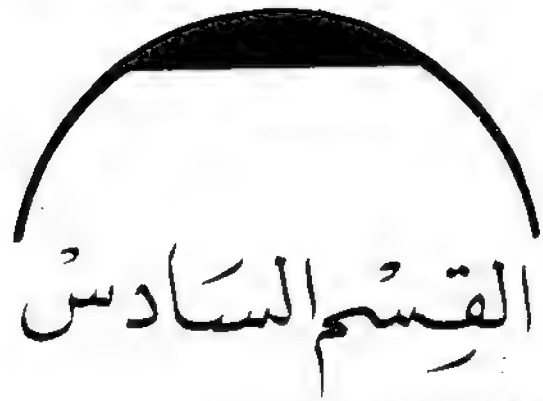 القِسْم السَادسْ